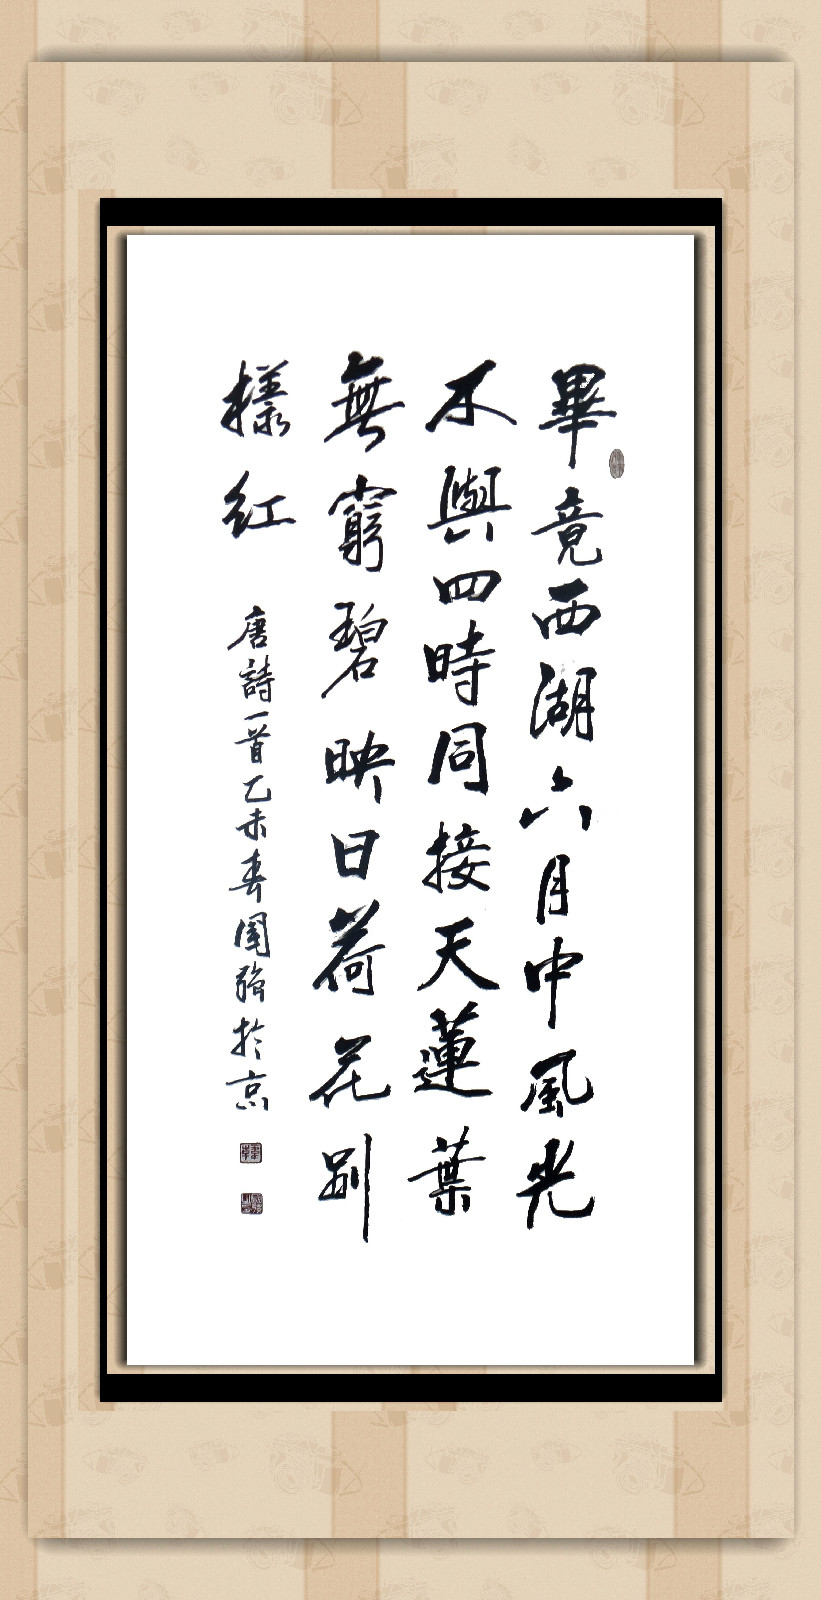 畢竟西湖六月中風光
不與四時同接天蓮葉
無窮碧映日荷花別
樣紅
唐詩一首乙未春國強於京